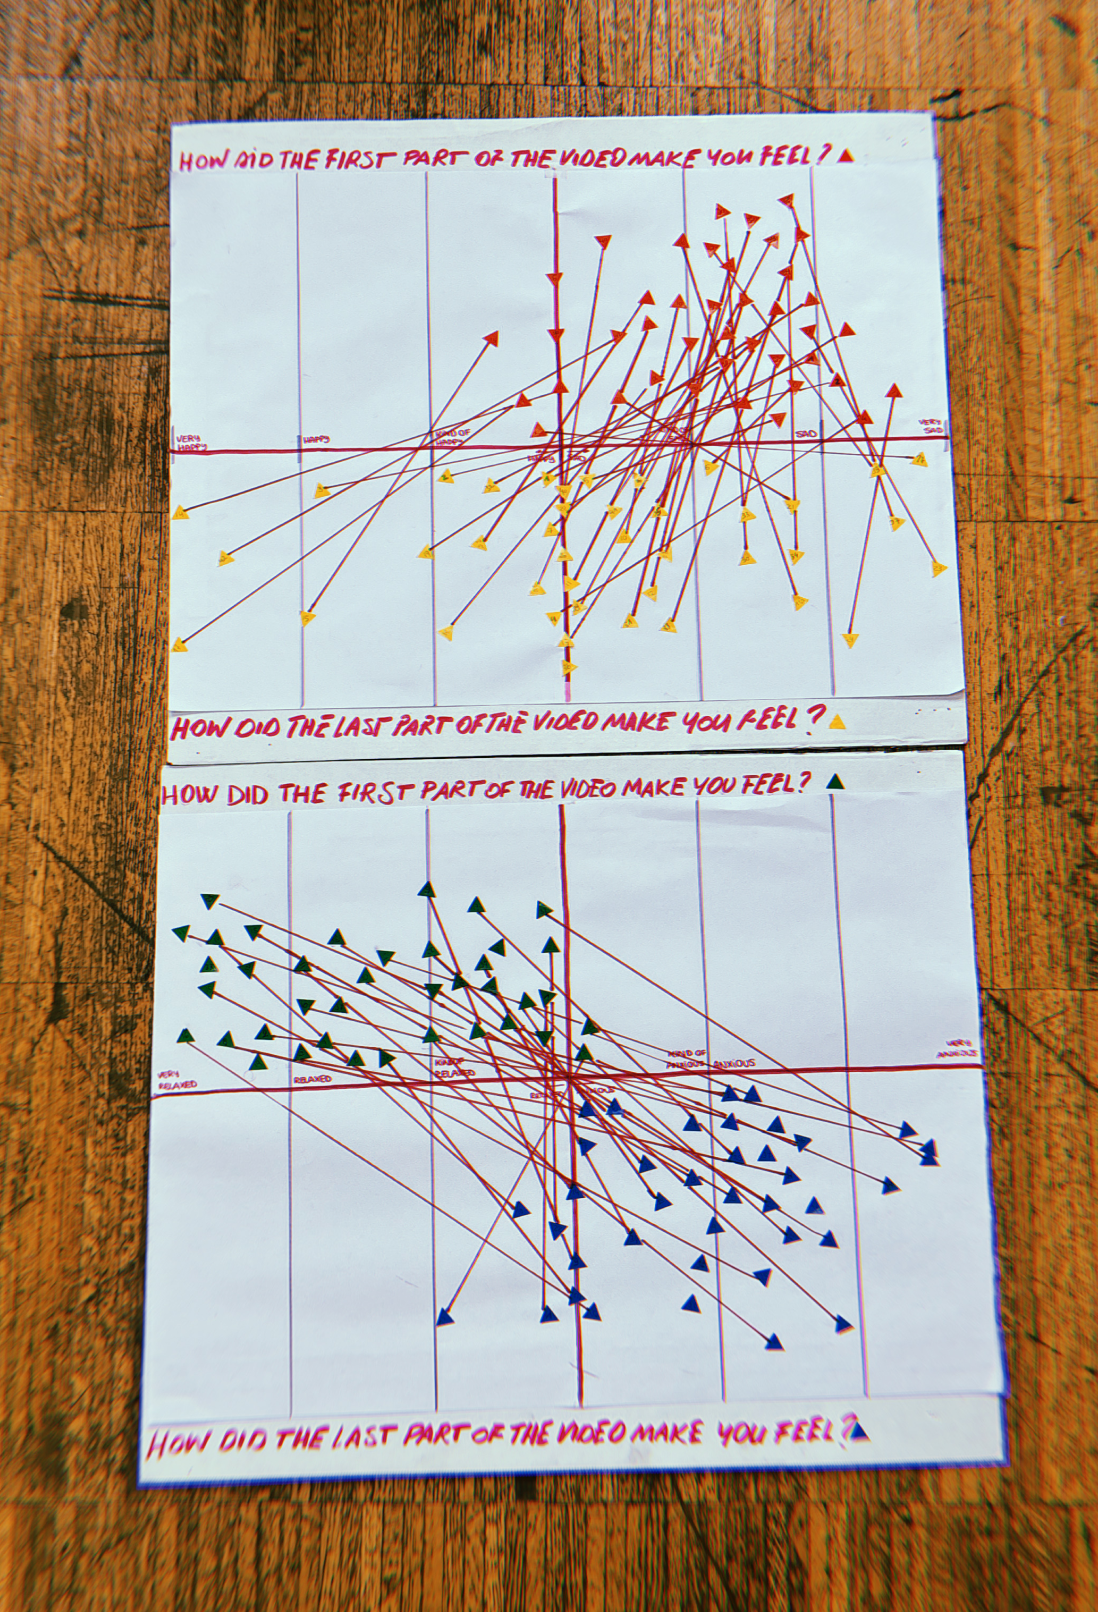 HOW DID THE FIRST PART OF THE VIDEO MAKE YOU FEEL?
VERY HAPPY
HAPPY
KIND OF HAPPY
HAPPY
SAD
SAD
VERY SAD
HOW DID THE LAST PART OF THE VIDEO MAKE YOU FEEL?
HOW DID THE FIRST PART OF THE VIDEO MAKE YOU FEEL?
VERY RELAXED
RELAXED
KIND OF RELAXED
KIND OF ANXIOUS
ANXIOUS
VERY ANXIOUS
HOW DID THE LAST PART OF THE VIDEO MAKE YOU FEEL?